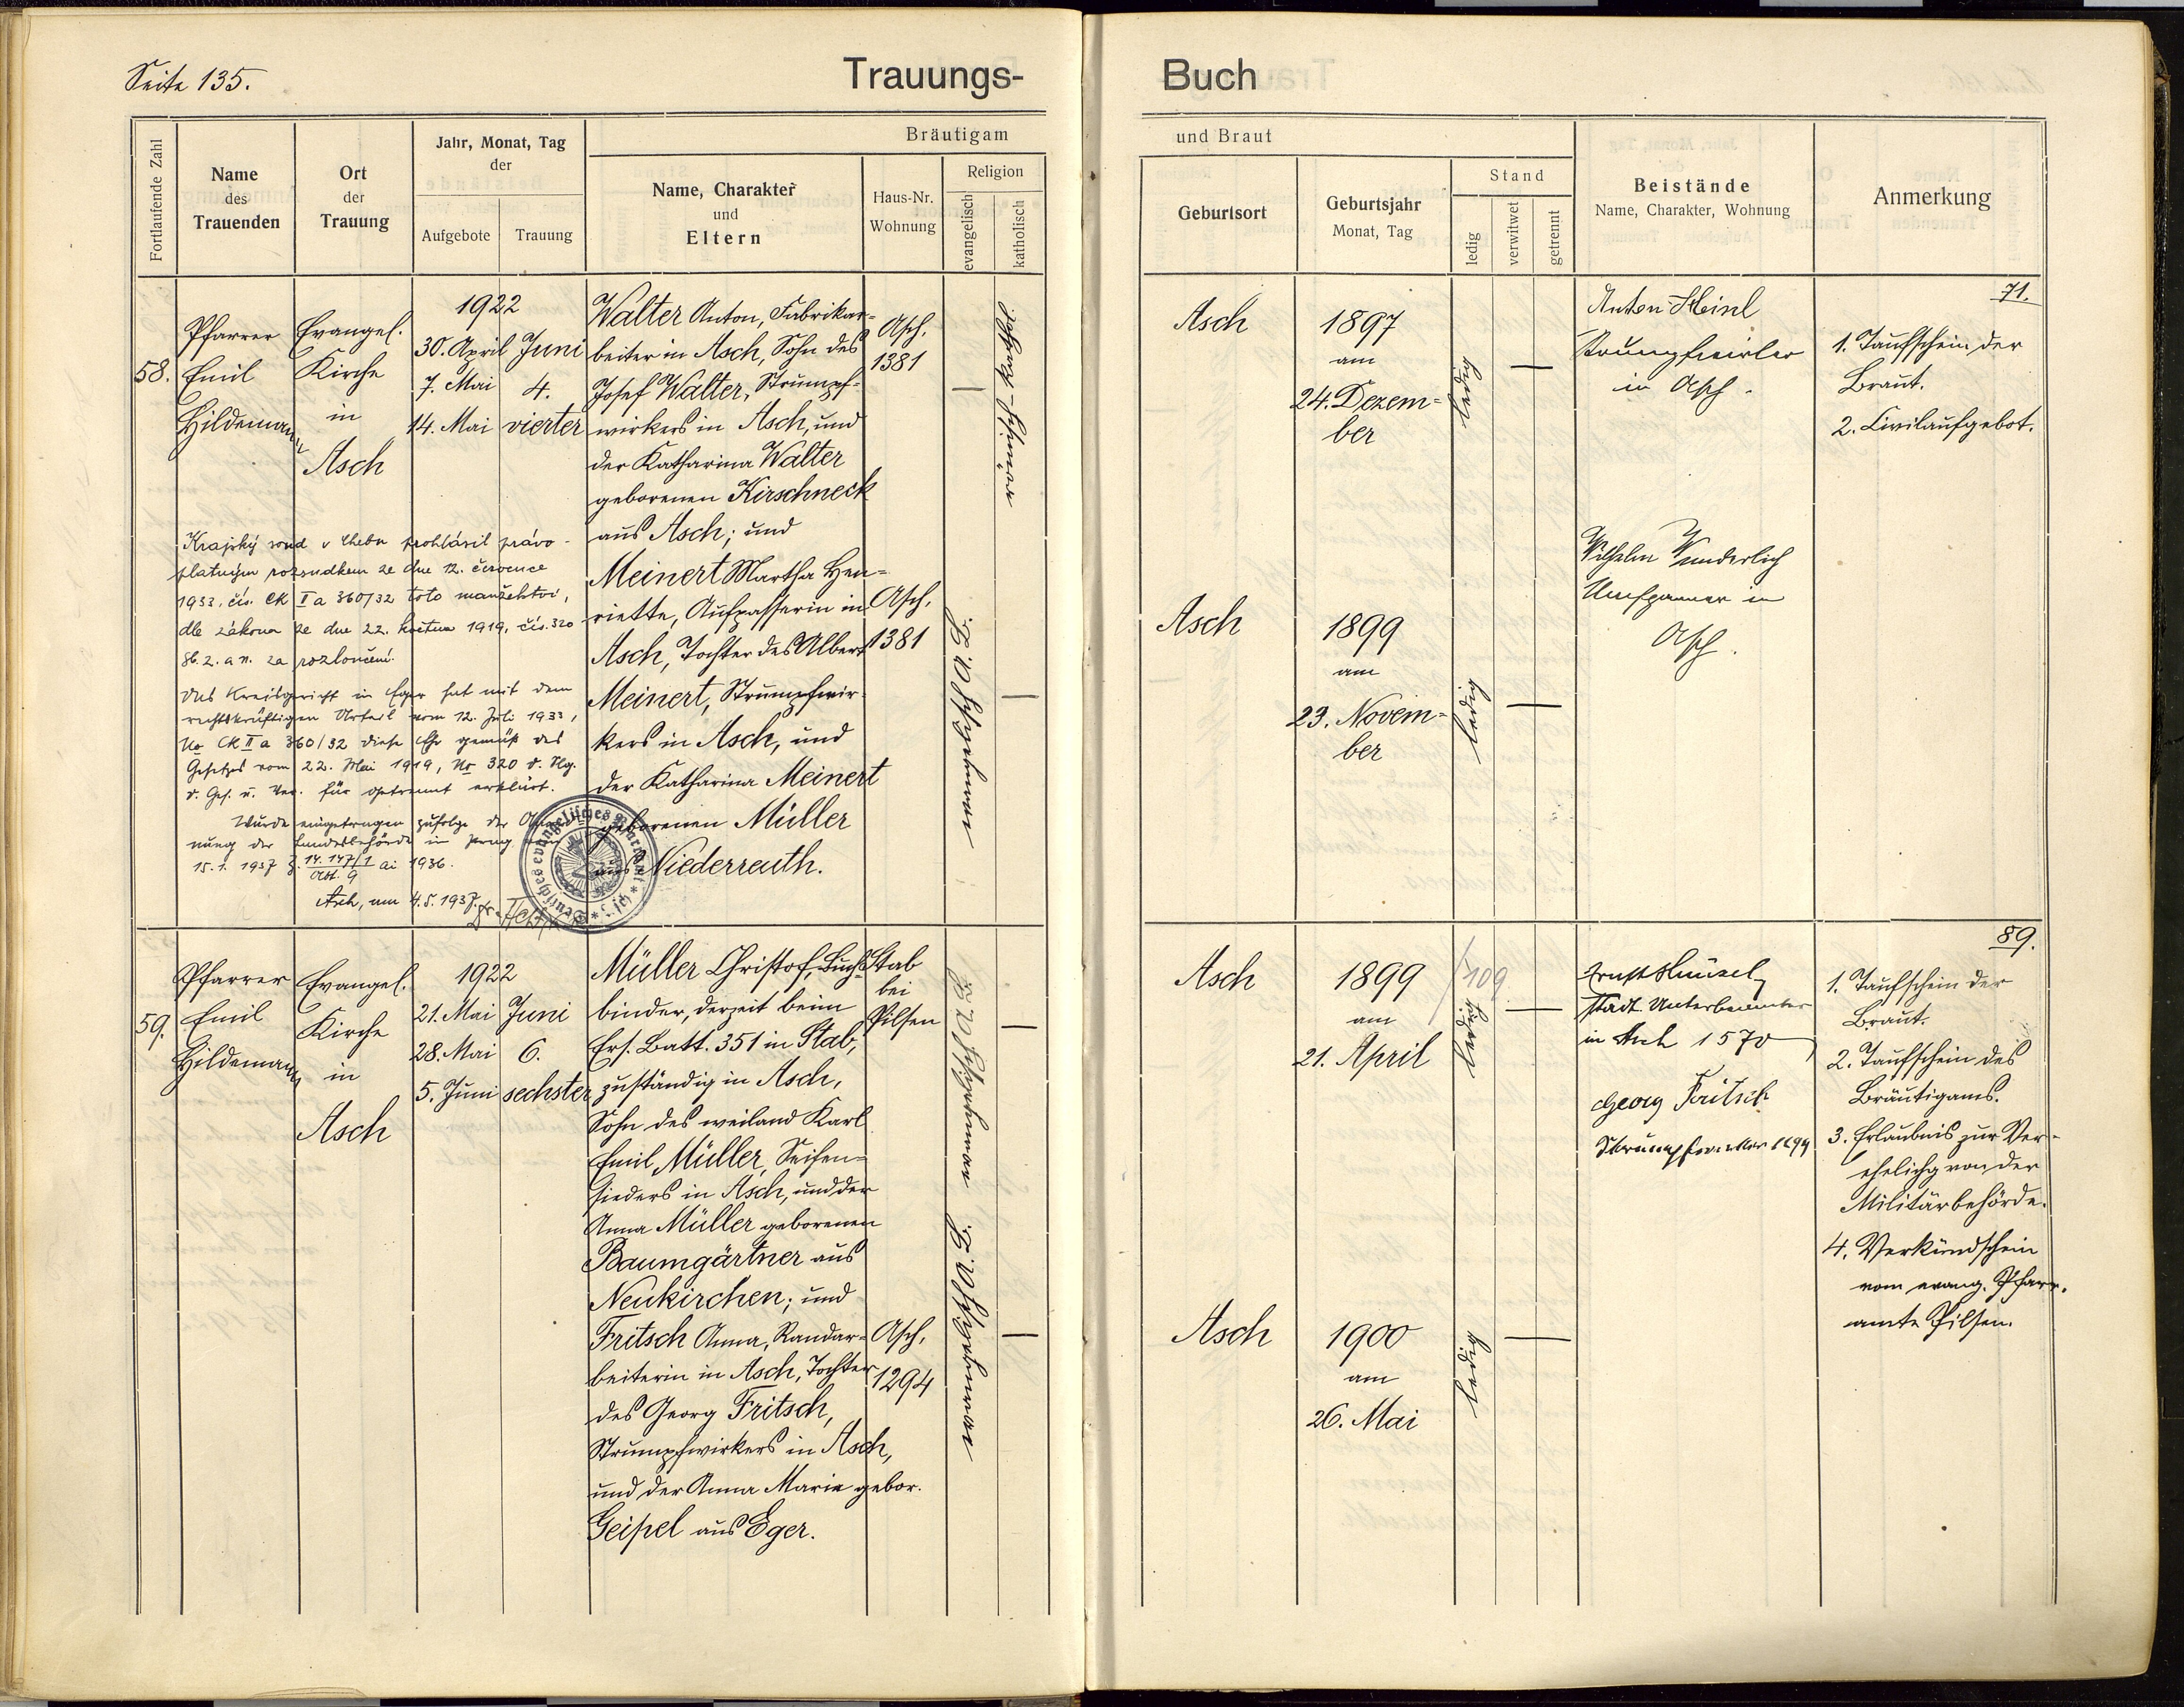 Seite 135.
Trauungs-
Buch
Fortlaufende Zahl
Name
des
Trauenden
Ort
der
Trauung
Jahr, Monat, Tag
der
Aufgebote
Trauung
Bräutigam
Name, Charakter
und
Eltern
Haus-Nr.
Wohnung
Religion
evangelisch
katholisch
und Braut
Geburtsort
Geburtsjahr
Monat, Tag
Stand
ledig
verwitwet
getrennt
Beistände
Name, Charakter, Wohnung
Anmerkung
58.
Pfarrer
Emil
Hildemann
Evangel.
Kirche
in
Asch
1922
30. April
7. Mai
14. Mai
Juni
4.
vierter
Walter Anton, Fabrikar-
beiter in Asch, Sohn des
Josef Walter, Strumpf-
wirkers in Asch, und
der Katharina Walter
geborenen Kirschneck
aus Asch; und
Meinert Martha Hen-
riette, Aufpasserin in
Asch, Tochter des Albert
Meinert, Strumpfwir-
kers in Asch, und
der Katharina Meinert
geborenen Müller
aus Niederreuth.
Asch,
1381
Asch,
1381
evangelisch A. B.
Krajský soud v Chebu prohlásil právo-
platným rozsudkem ze dne 12. července
1933, čís. Ck II a 360/32 toto manželství,
dle zákona ze dne 22. května 1919, čís. 320
Sb. z. a n. za rozloučené.
Das Kreisgericht in Eger hat mit dem
rechtskräftigen Urteil vom 12. Juli 1933,
No Ck II a 360/32 diese Ehe gemäß des
Gesetzes vom 22. Mai 1919, No 320 d. Slg.
d. Ges. u. Ver. für getrennt erklärt.
Wurde eingetragen zufolge der
nung der Landesbehörde in Prag vom
15.1.1937 Z. 14.147/1 ai 1936.
Abt. 9
Asch, am 4.5.1937.
Asch
1897
am
24. Dezem-
ber
ledig
Anton Heinl
Strumpfwirker
in Asch.
71.
1. Taufschein der
Braut.
2. Civilaufgebot.
Asch
1899
am
23. Novem-
ber
ledig
Wilhelm Wunderlich
in
Asch.
59.
Pfarrer
Emil
Hildemann
Evangel.
Kirche
in
Asch
1922
21. Mai
28. Mai
5. Juni
Juni
6.
sechster
Müller Christof, Buch-
binder, derzeit beim
Ers. Batt. 351 in Stab,
zuständig in Asch,
Sohn des weiland Karl
Emil Müller, Seifen-
sieders in Asch, und der
Anna Müller geborenen
Baumgärtner aus
Neukirchen; und
Fritsch Anna, Randar-
beiterin in Asch, Tochter
des Georg Fritsch,
Strumpfwirkers in Asch,
und der Anna Marie gebor.
Geipel aus Eger.
Stab
bei
Pilsen
Asch,
1294
evangelisch A. B.
evangelisch A. B.
Asch
1899
am
21. April
109
ledig
Ernst
städt. Unterbeamter
in Asch 1570
Georg Fritsch
Strumpfwirker 1294
89.
1. Taufschein der
Braut.
2. Taufschein des
Bräutigams.
3. Erlaubnis zur Ver-
ehelichg von der
Militärbehörde.
4. Verkündschein
vom evang. Pfarr-
amte Pilsen.
Asch
1900
am
26. Mai
ledig